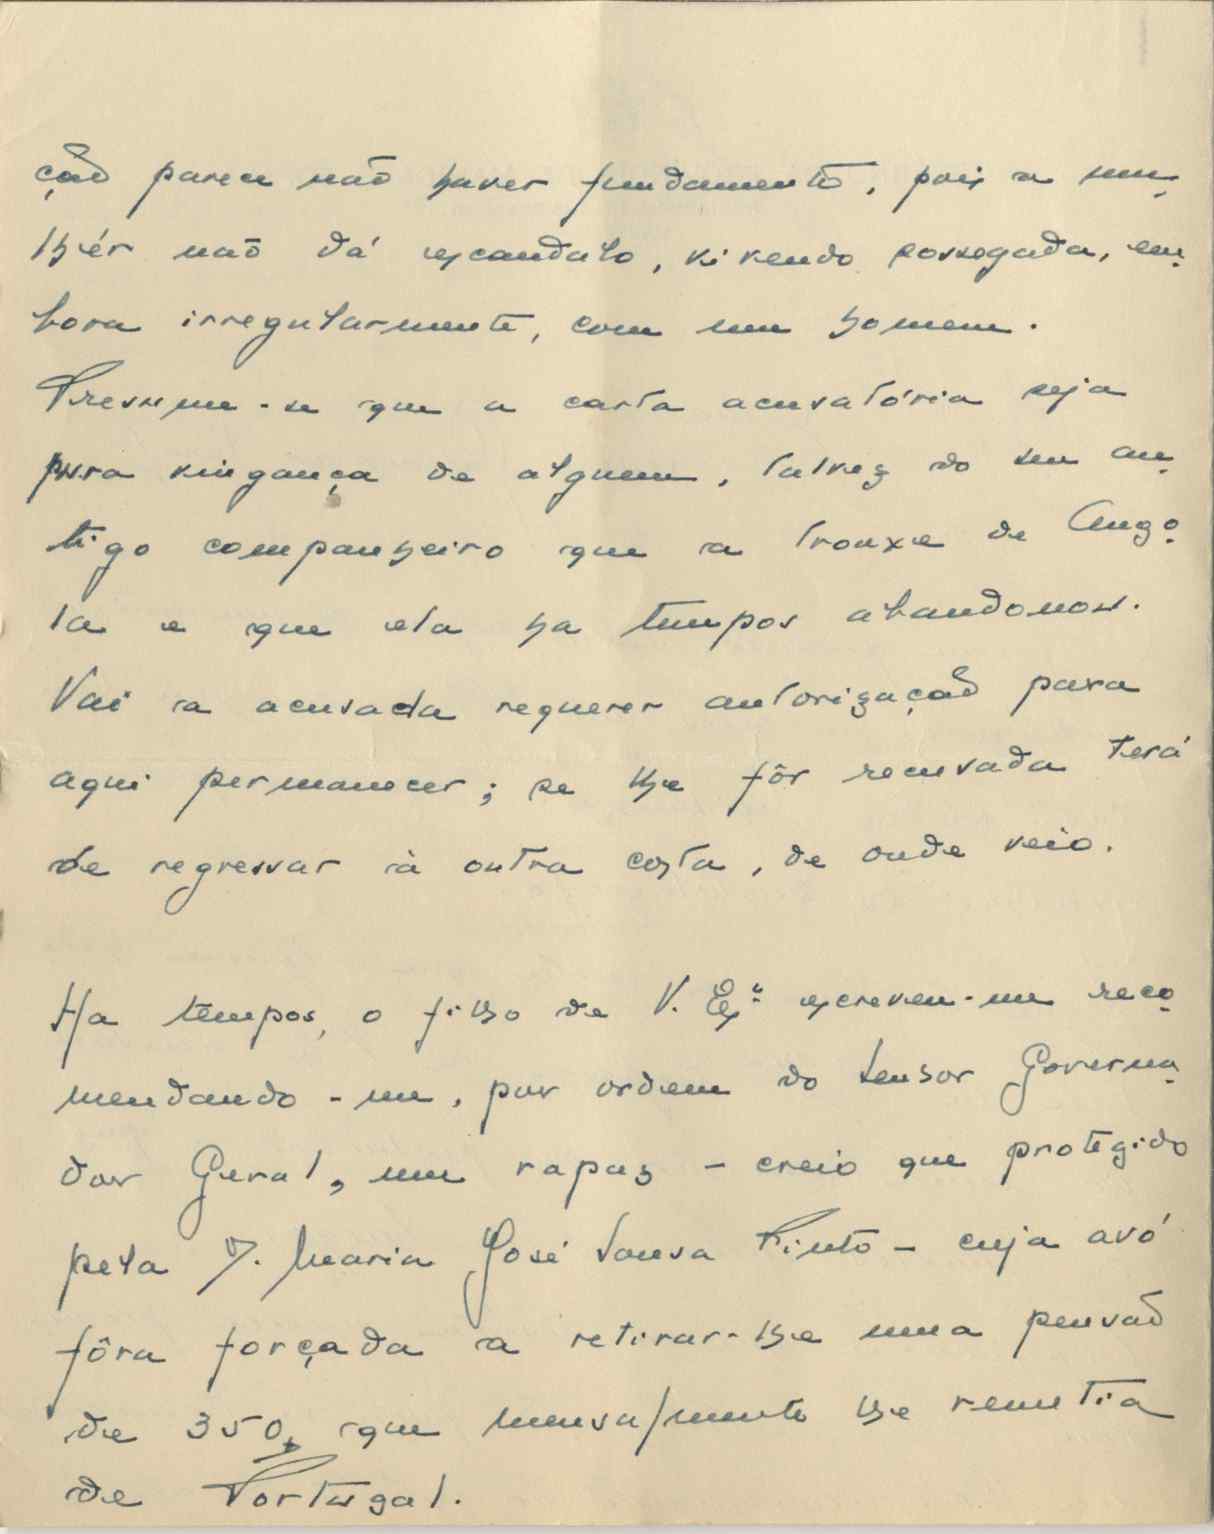 ção parece não haver fundamento, pois a mu-
lhér não dá escandalo, vivendo sossegada, em-
bora irregularmente, com um homem.
Presume-se que a carta acusatória seja
pura vingança de alguem, talvez do seu an-
tigo companheiro que a trouxe de Ango-
la e que ela ha tempos abandonou.
Vai a acusada requerer autorização para
aqui permanecer; se lhe fôr recusada terá
de regressar à outra costa, de onde veio.
Ha tempos, o filho de V. Exª escreveu-me reco-
mendando-me, por ordem do Senhor Governa-
dor Geral, um rapaz - creio que protegido
pela D. Maria José Sousa Pinto - cuja avó
fôra forçada a retirar-lhe uma pensão
de 350$ que mensalmente lhe remetia
de Portugal.